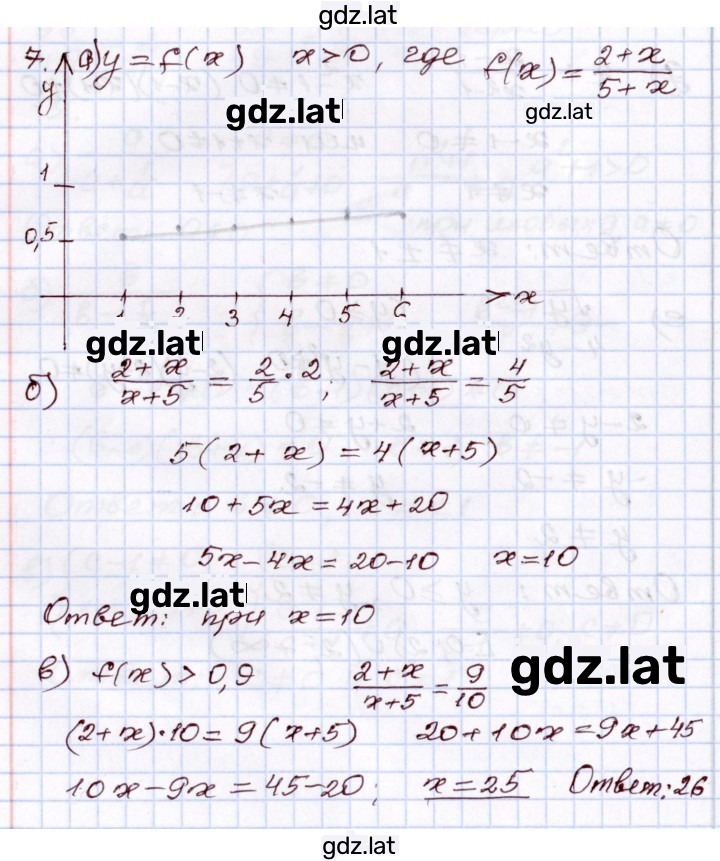 gdz.lat
7. а) y = f(x) x > 0, где f(x) = \frac{2+x}{5+x}
y
gdz.lat gdz.lat
1
0,5
1 2 3 4 5 6 > x
gdz.lat gdz.lat
б) \frac{2+x}{x+5} = \frac{2}{5} · 2; \frac{2+x}{x+5} = \frac{4}{5}
5(2 + x) = 4(x+5)
10 + 5x = 4x + 20
5x - 4x = 20 - 10 x = 10
gdz.lat
Ответ: при x = 10
в) f(x) > 0,9 \frac{2+x}{x+5} = \frac{9}{10}
gdz.lat
(2+x)·10 = 9(x+5) 20 + 10x = 9x + 45
10x - 9x = 45 - 20; x = 25 Ответ: 26
gdz.lat